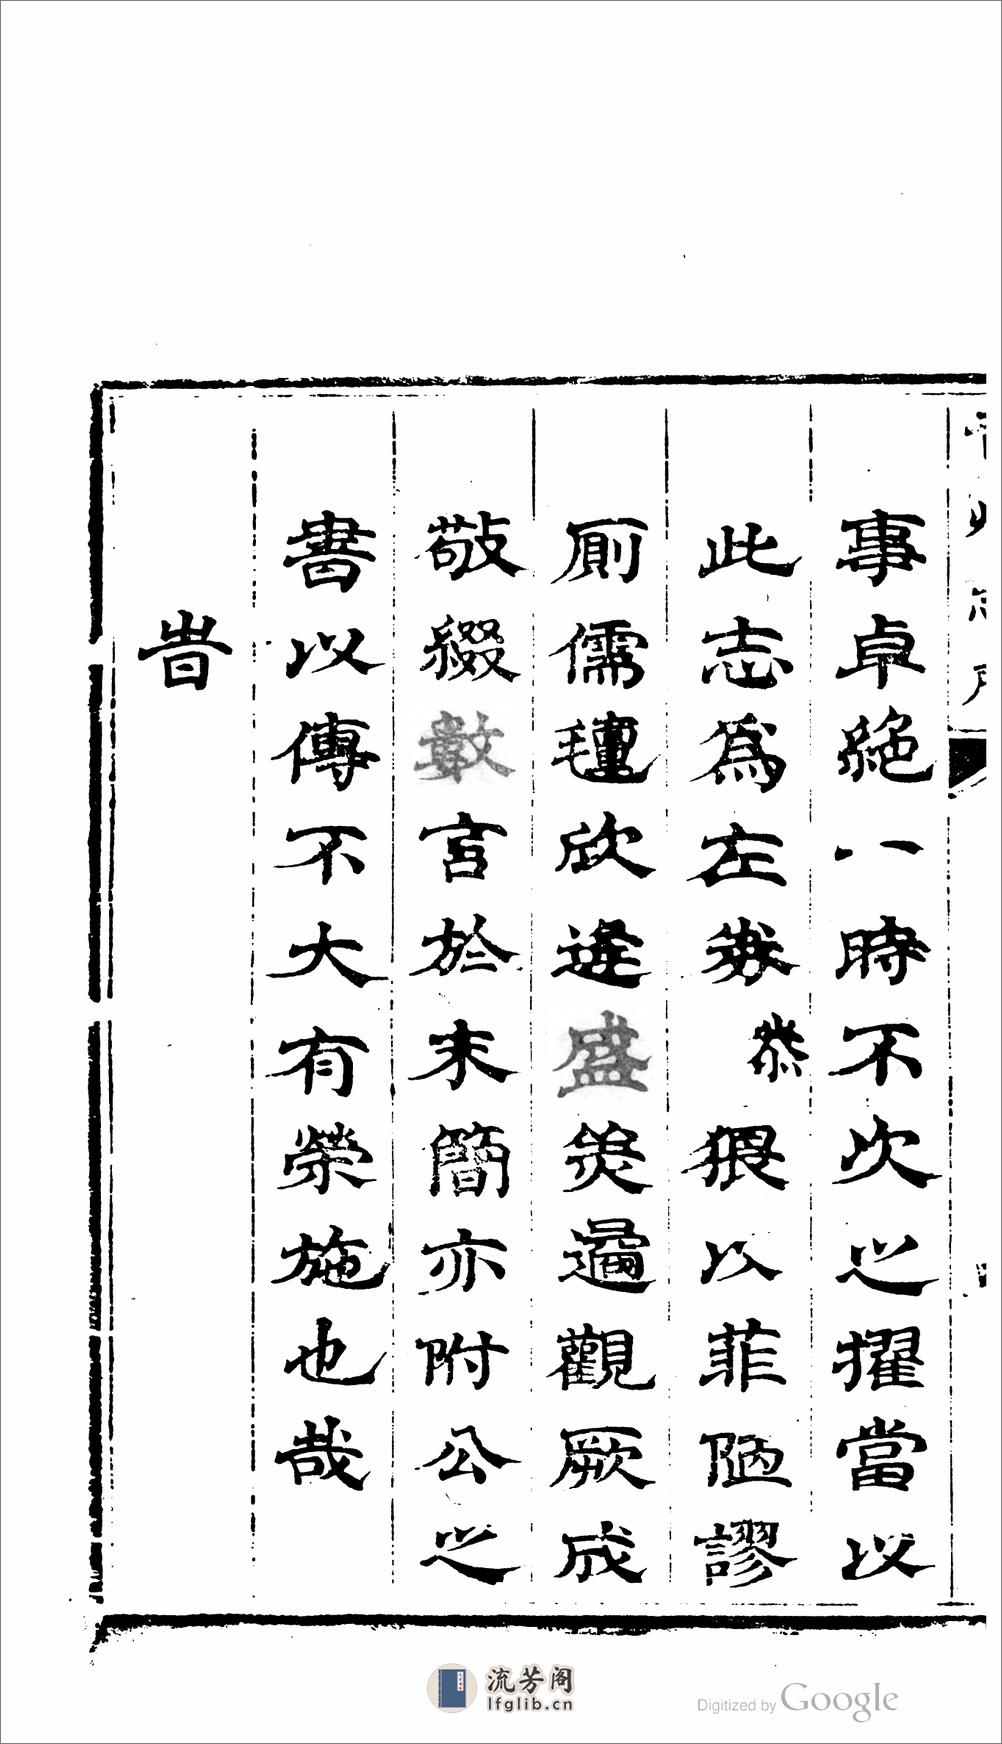 事卓絶一時不次之擢當以
此志為左券恭猥以菲陋謬
厠儒氊欣逢盛羙遹觀厥成
敬綴數言於末簡亦附公之
書以傳不大有榮施也哉
旹
流芳阁
lfglib.cn
Digitized by Google